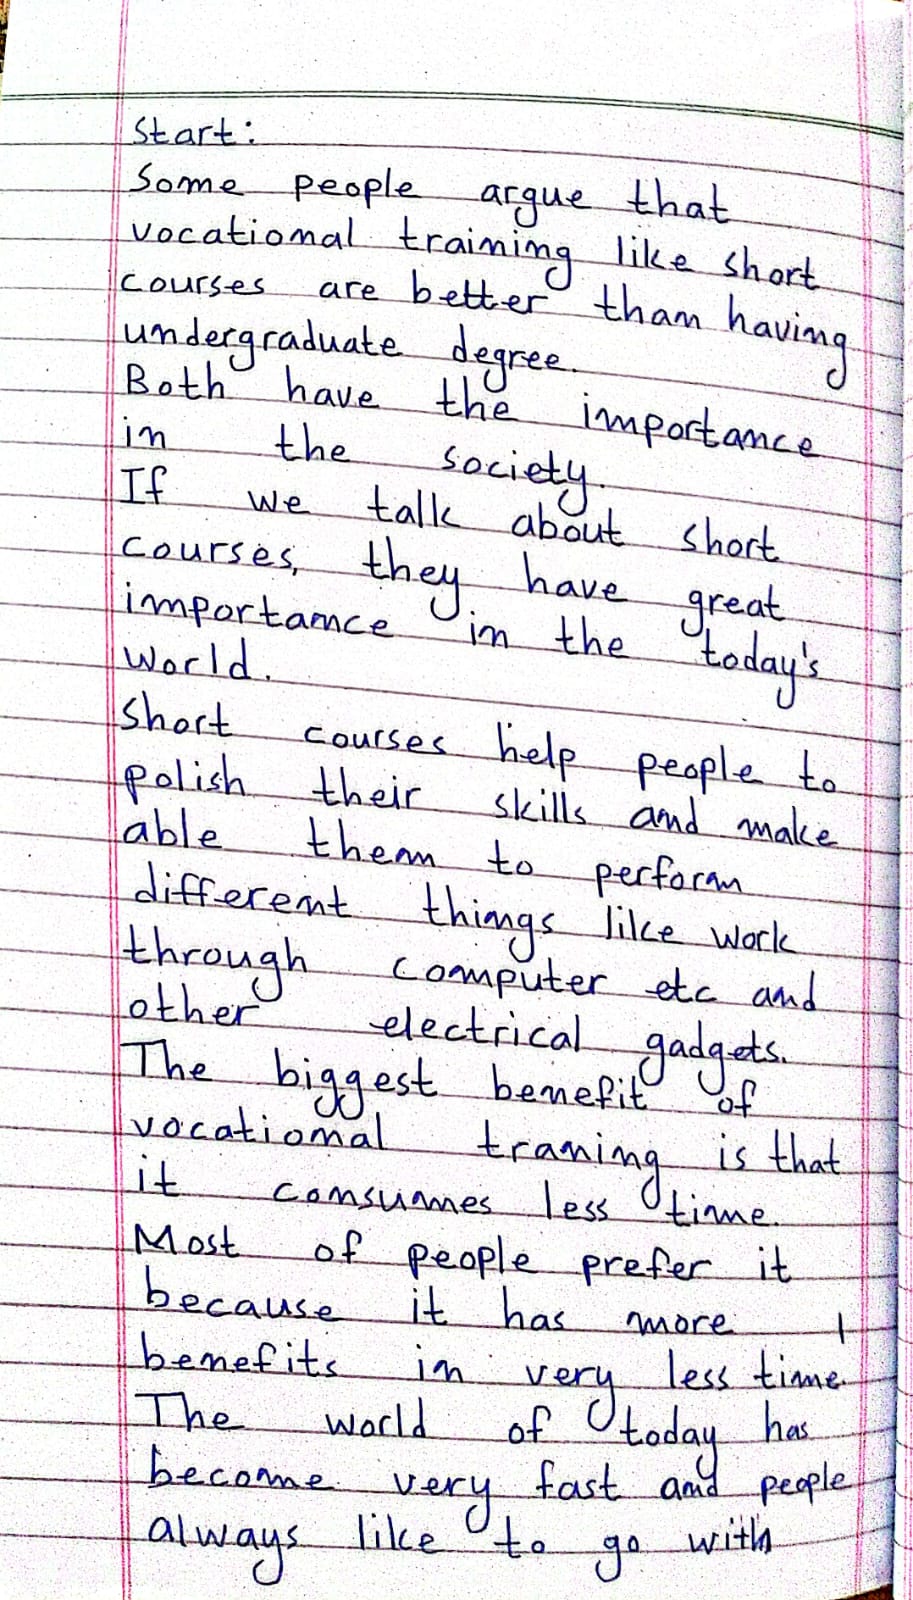 Start:
Some people argue that
vocational training like short
courses are better than having
undergraduate degree.
Both have the importance
in the society.
If we talk about short
courses, they have great
importance in the today's
World.
Short courses help people to
polish their skills and make
able them to perform
different things like work
through computer etc and
other electrical gadgets.
The biggest benefit of
vocational traning is that
it consumes less time.
Most of people prefer it
because it has more
benefits in very less time.
The world of today has
become very fast and people
always like to go with